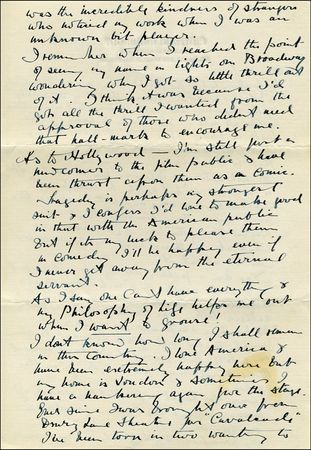 was the incredible kindness of strangers
who noticed my work when I was an
unknown bit player.
I remember when I reached the point
of seeing my name in lights on Broadway
wondering why I got so little thrill out
of it. I think it was because I'd
got all the thrill I wanted from the
approval of those who didn't need
that hall-mark to encourage me.
As to Hollywood — I'm still just a
newcomer to the film public & have
been thrust upon them as a comic.
Tragedy is perhaps my strongest
suit & I confess I'd like to make good
in that with the American public
but if its my luck to please them
in comedy I'll be happy even if
I never get away from the eternal
servant.
As I say one can't have everything &
my Philosophy of life helps me out
when I want to grouse!
I don't know how long I shall remain
in this country. I love America &
have been extremely happy here but
my home is London & sometimes I
have a hankering again for the stage.
Ever since I was brought over from
Drury Lane Theatre for "Cavalcade"
I've been torn in two wanting to